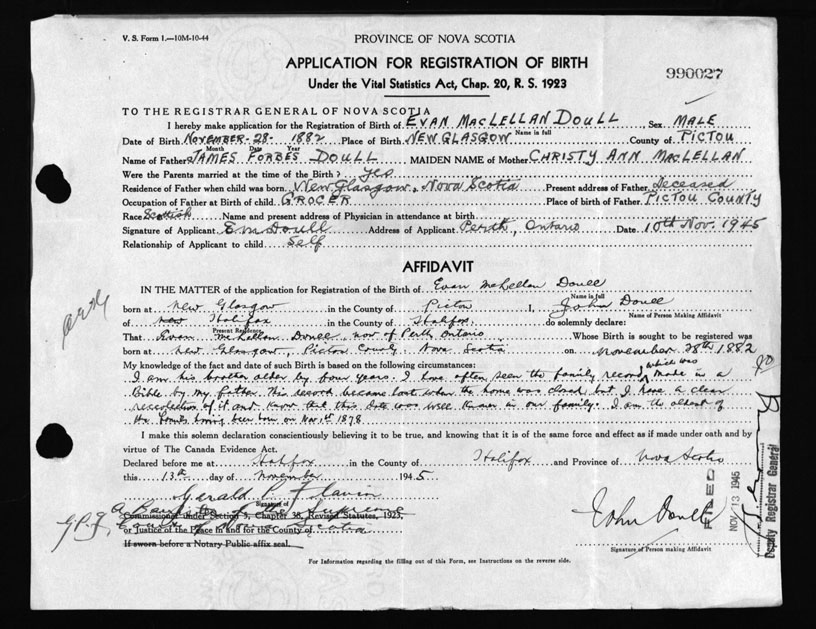 V. S. Form 1.—10M-10-44
PROVINCE OF NOVA SCOTIA
APPLICATION FOR REGISTRATION OF BIRTH
Under the Vital Statistics Act, Chap. 20, R. S. 1923
990027
TO THE REGISTRAR GENERAL OF NOVA SCOTIA
I hereby make application for the Registration of Birth of EVAN MACLELLAN DOULL Sex MALE
Name in full
Date of Birth NOVEMBER-28-1882 Place of Birth NEW GLASGOW County of PICTOU
Month Date Year
Name of Father JAMES FORBES DOULL MAIDEN NAME of Mother CHRISTY ANN MACLELLAN
Were the Parents married at the time of the Birth? yes
Residence of Father when child was born New Glasgow, Nova Scotia Present address of Father Deceased
Occupation of Father at Birth of child GROCER Place of birth of Father PICTOU COUNTY
Race Scottish Name and present address of Physician in attendance at birth
Signature of Applicant E M Doull Address of Applicant Perth, Ontario Date 10th Nov. 1945
Relationship of Applicant to child Self
AFFIDAVIT
IN THE MATTER of the application for Registration of the Birth of Evan McLellan Doull
Name in full
born at New Glasgow in the County of Pictou I, John Doull
Name of Person Making Affidavit
of Halifax in the County of Halifax, do solemnly declare:
Present Residence
That Evan McLellan Doull, now of Perth Ontario Whose Birth is sought to be registered was
born at New Glasgow, Pictou County, Nova Scotia on November 28th 1882
My knowledge of the fact and date of such Birth is based on the following circumstances:
which was
I am his brother older by four years. I have often seen the family record made in a
Bible by my father. This record became lost when the home was closed but I have a clear
recollection of it and know that this date was well known in our family. I am the oldest of
the family having been born on Nov 1st 1878
I make this solemn declaration conscientiously believing it to be true, and knowing that it is of the same force and effect as if made under oath and by
virtue of The Canada Evidence Act.
Declared before me at Halifax in the County of Halifax and Province of Nova Scotia
this 13th day of November 1945
Gerald P Flavin
Signature of
A Barrister of the Supreme
Commissioner under Section 9, Chapter 38, Revised Statutes, 1923,
Court of Nova Scotia
G.P.F.
or Justice of the Peace in and for the County of
If sworn before a Notary Public affix seal.
John Doull
Signature of Person making Affidavit
FILED
NOV 13 1945
Deputy Registrar General
For Information regarding the filling out of this Form, see Instructions on the reverse side.